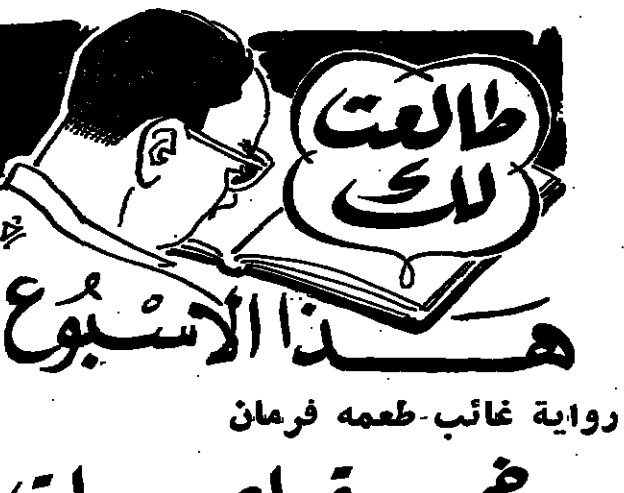 طالعت
لك
هذا الاسبوع
رواية غائب طعمه فرمان